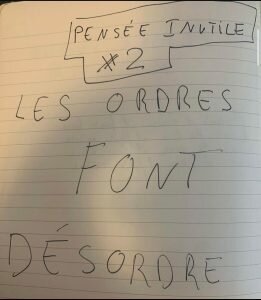 PENSÉE INUTILE
#2
LES ORDRES
FONT
DÉSORDRE